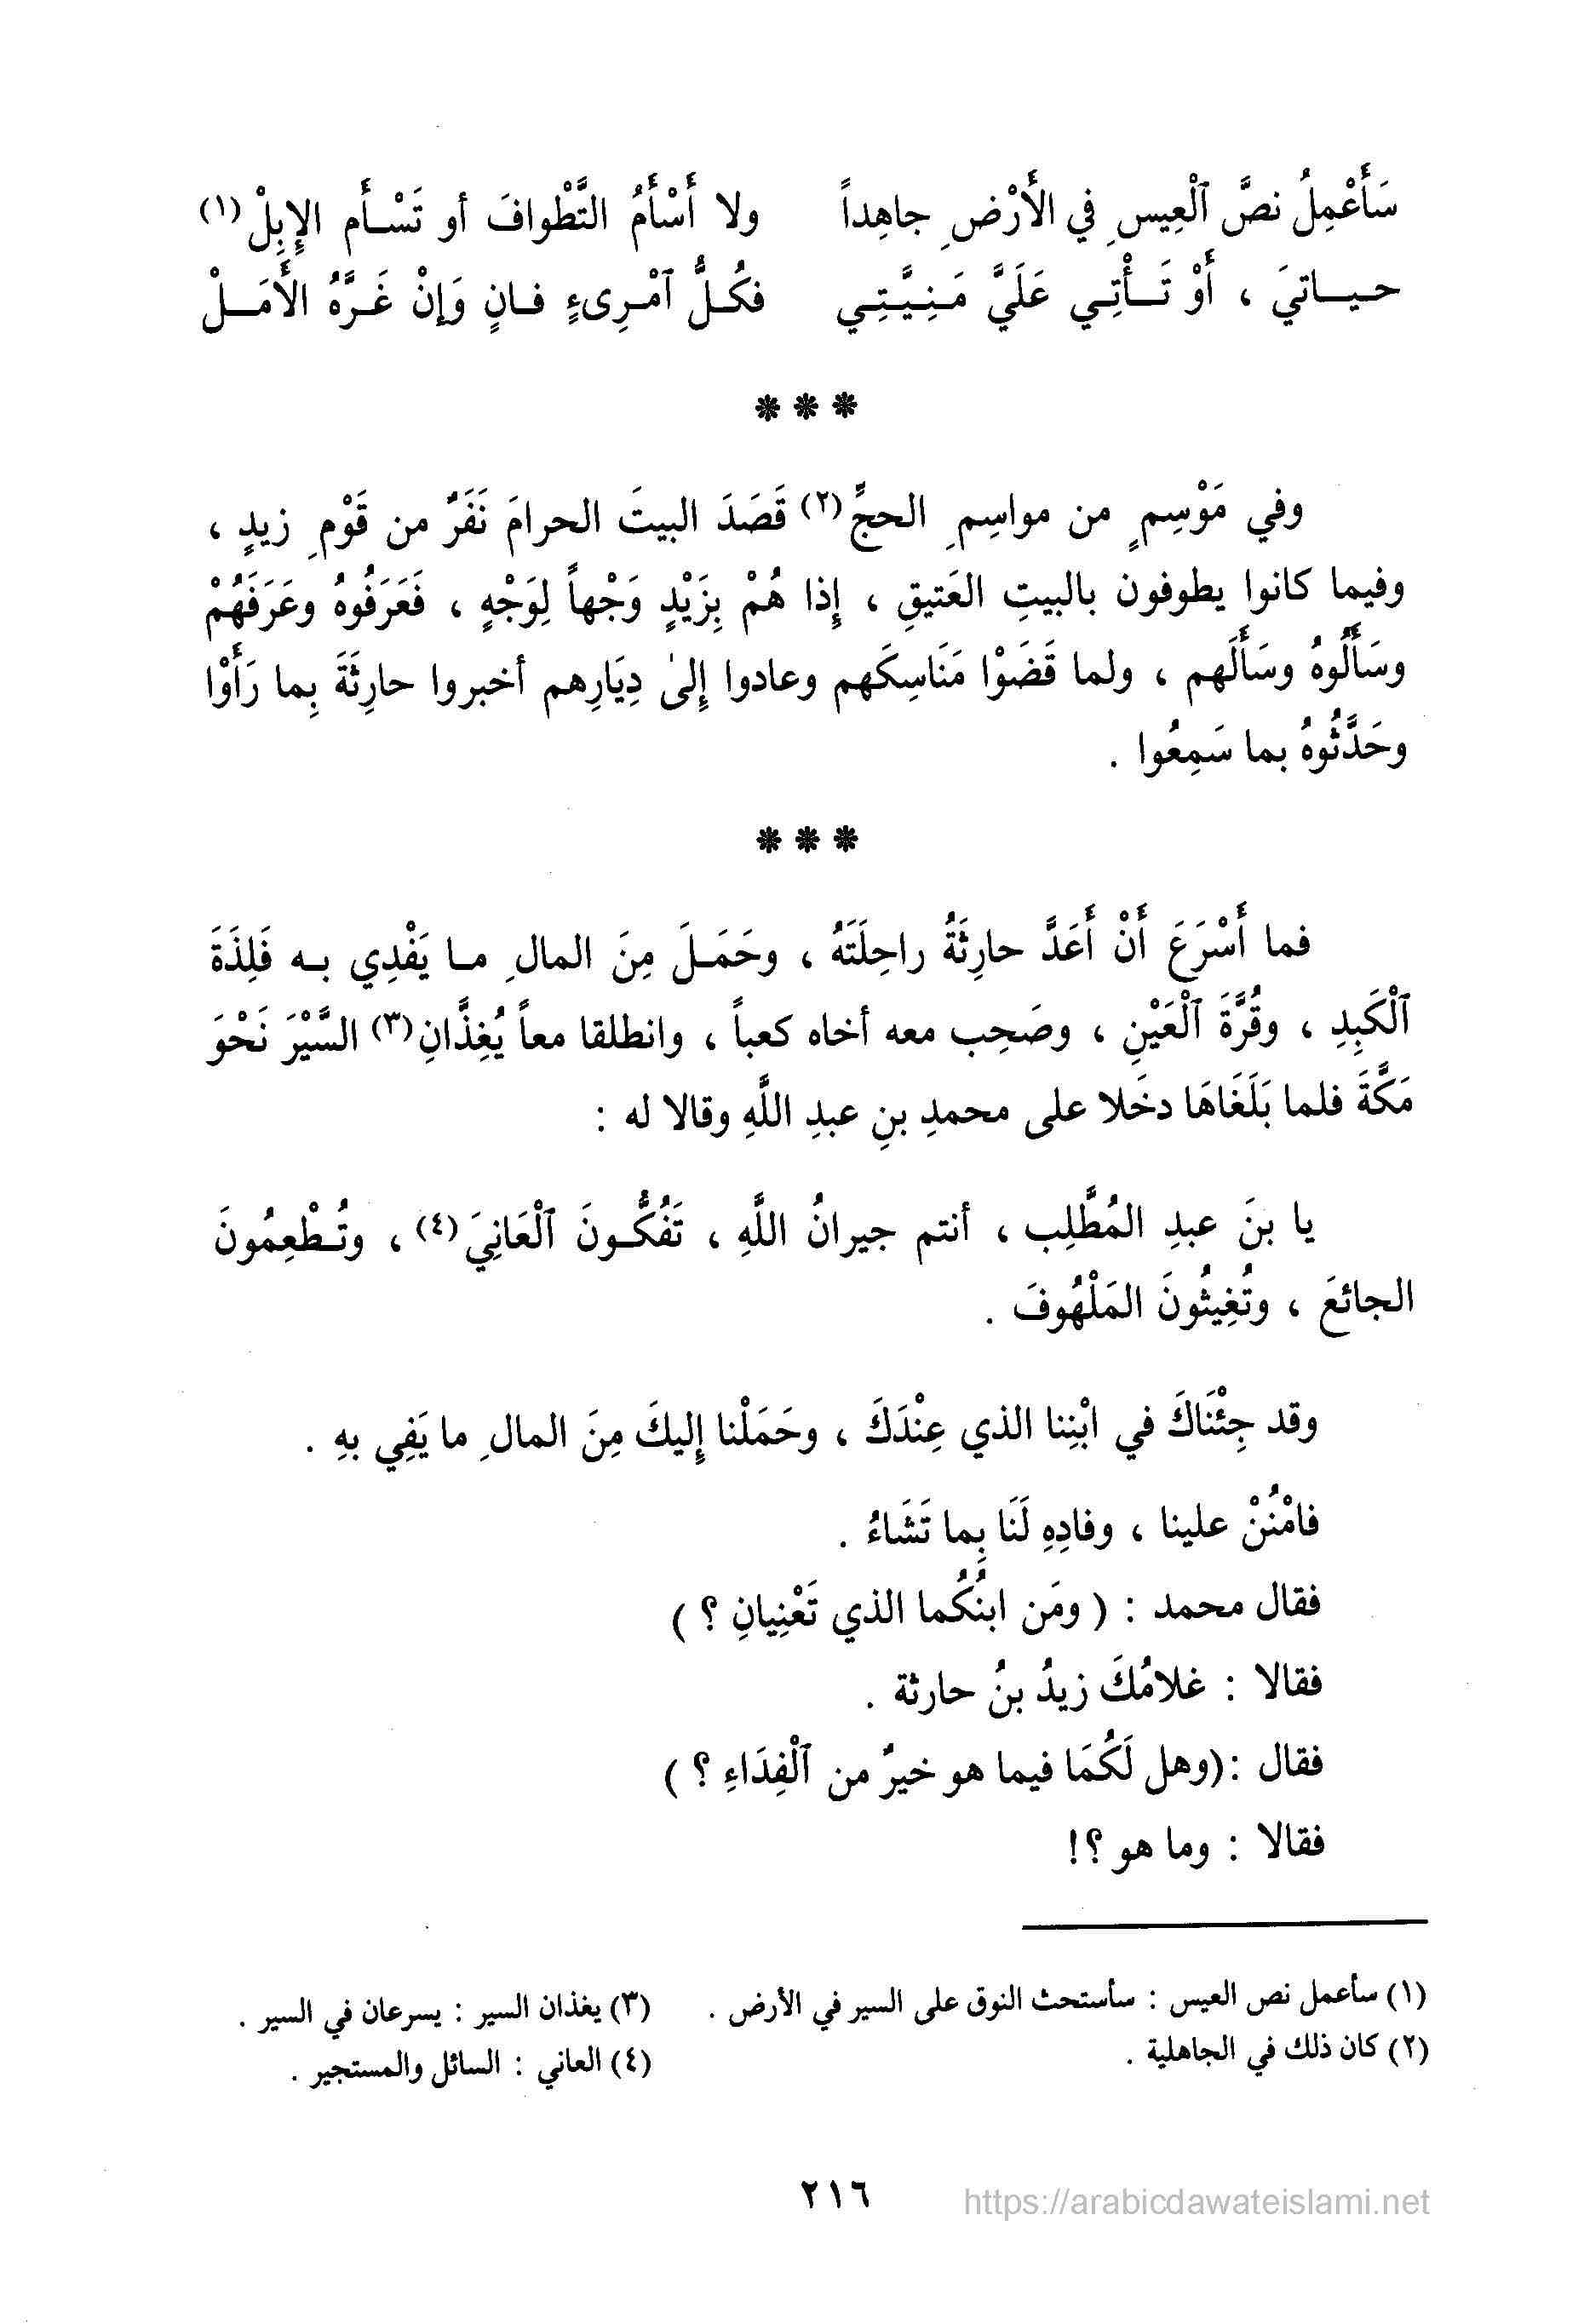 سَأَعْمِلُ نصَّ ٱلْعِيسِ في الأَرْضِ جاهِداً ولا أَسْأَمُ التَّطْوافَ أو تَسْـأَم الإِبِلْ(١)
حـيــاتيَ ، أَوْ تَــأْتِـي عَلَيَّ مَـنِـيَّـتِـي فكُـلُّ ٱمْـرِىءٍ فـانٍ وَإنْ غَـرَّهُ الأَمَــلْ
***
وفي مَوْسِمٍ من مواسِمِ الحجِّ(٢) قَصَدَ البيتَ الحرامَ نَفَرٌ من قَوْمِ زيدٍ ،
وفيما كانوا يطوفون بالبيتِ العَتيقِ ، إِذا هُمْ بِزَيْدٍ وَجْهاً لِوَجْهٍ ، فَعَرَفُوهُ وعَرَفَهُمْ
وسَأَلُوهُ وسَأَلَهم ، ولما قَضَوْا مَنَاسِكَهم وعادوا إِلىٰ دِيَارِهم أخبروا حارِثَةَ بِما رَأَوْا
وحَدَّثُوهُ بما سَمِعُوا .
***
فما أَسْرَعَ أَنْ أَعَدَّ حارِثَةُ راحِلَتَهُ ، وحَمَـلَ مِنَ المالِ مـا يَفْدِي بـه فَلِذَةَ
ٱلْكَبِدِ ، وقُرَّةَ ٱلْعَيْنِ ، وصَحِب معه أخاه كعباً ، وانطلقا معاً يُغِذَّانِ(٣) السَّيْرَ نَحْوَ
مَكَّةَ فلما بَلَغَاهَا دخَلا على محمدِ بنِ عبدِ اللَّهِ وقالا له :
يا بنَ عبدِ المُطَّلِب ، أنتم جيرانُ اللَّهِ ، تَفُكُّـونَ ٱلْعَانِيَ(٤) ، وتُـطْعِمُونَ
الجائعَ ، وتُغِيثُونَ المَلْهُوفَ .
وقد جِئْنَاكَ في ابْنِنا الذي عِنْدَكَ ، وحَمَلْنا إِليكَ مِنَ المالِ ما يَفِي بهِ .
فامْنُنْ علينا ، وفادِهِ لَنَا بِما تَشَاءُ .
فقال محمد : ( ومَن ابنُكُما الذي تَعْنِيانِ ؟ )
فقالا : غلامُكَ زيدُ بنُ حارثة .
فقال :(وهل لَكُمَا فيما هو خيرٌ من ٱلْفِدَاءِ ؟ )
فقالا : وما هو ؟!
(١) سأعمل نص العيس : سأستحث النوق على السير في الأرض .
(٢) كان ذلك في الجاهلية .
(٣) يغذان السير : يسرعان في السير .
(٤) العاني : السائل والمستجير .
٢١٦
https://arabicdawateislami.net